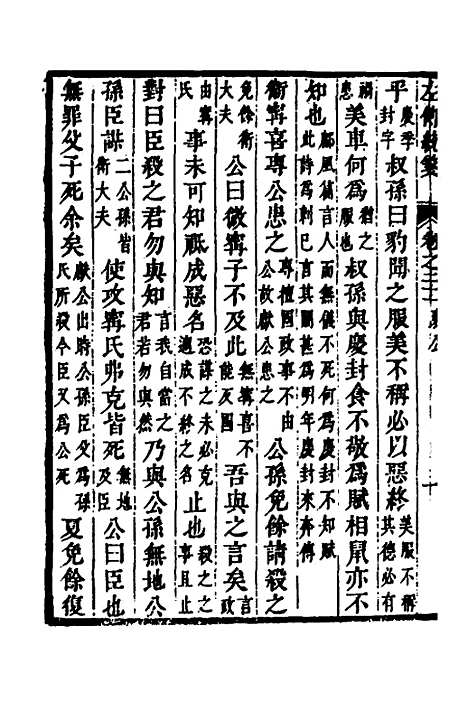 左傳統箋 卷之二十 襄公
平慶季封字叔孫曰豹聞之服美不稱必以惡終美服不稱其德必有
禍患美車何爲叔孫與慶封食不敬爲賦相鼠亦不
知也鄘風篇言人而無儀不死何爲慶封不知賦此詩爲刺已言其闇甚爲明年慶封來奔傳
衛甯喜專公患之專擅國政事不由公故獻公患之公孫免餘請殺之
免餘衛大夫公曰微甯子不及此無甯喜不能反國吾與之言矣言政
由甯氏事未可知祗成惡名恐謀之未必克適成不終之名止也殺之之事且止
對曰臣殺之君勿與知言我自當之君若勿與然乃與公孫無地公
孫臣謀二公孫皆衛大夫使攻甯氏弗克皆死無地及臣公曰臣也
無罪父子死余矣獻公出時公孫臣父爲孫氏所殺今臣又爲公死夏免餘復